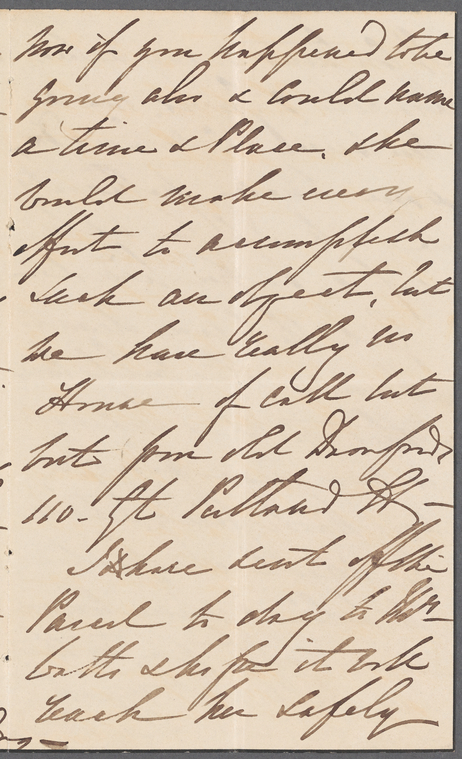 Now if you happened to be
going also & could name
a time & Place. she
would make every
effort to accomplish
such an object, but
we have really no
House of call but
but poor old
110. Gt Portland St –
I have sent off the
Parcel to day to Mrs
& hope it will
reach her safely